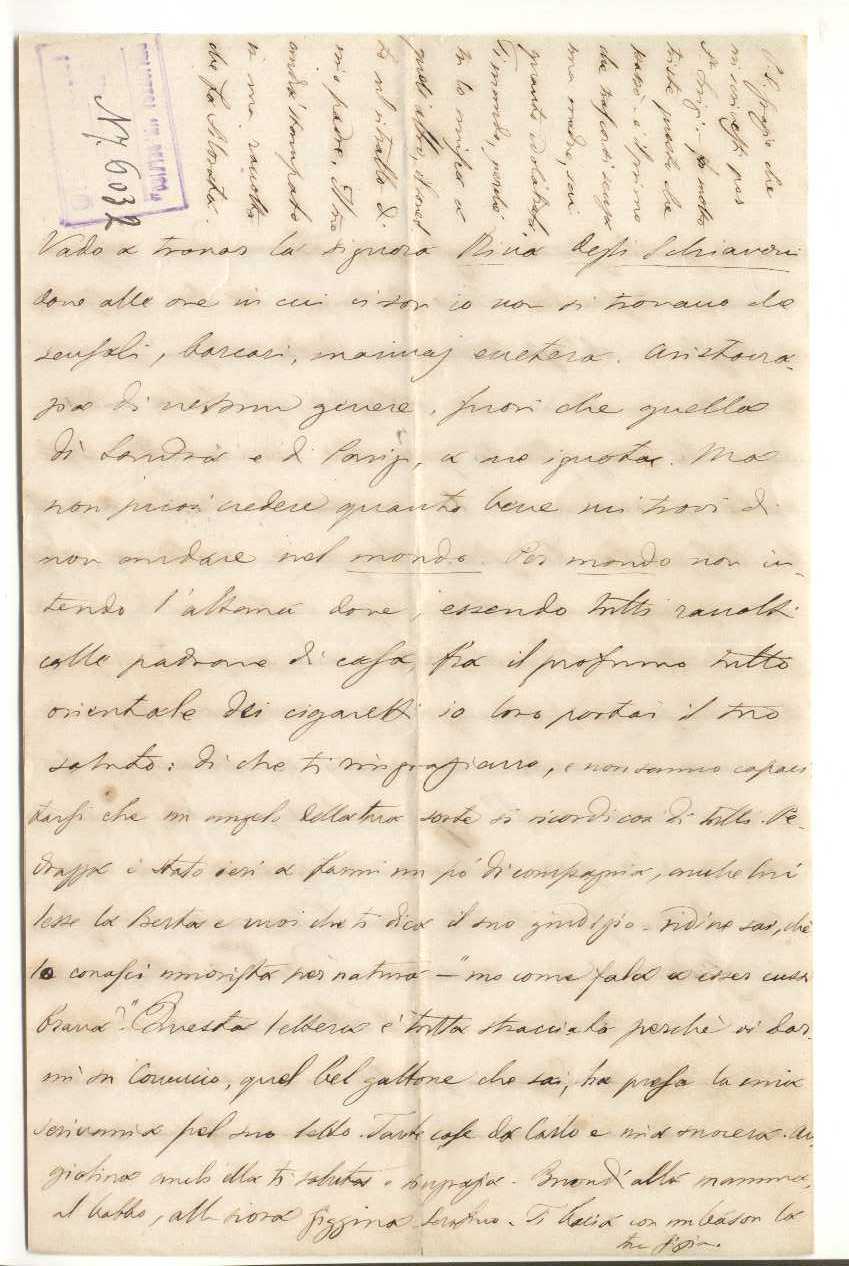 Vado a trovar la signora Riva degli Schiavoni
dove alle ore in cui ci son io non si trovano che
sensali, barcari, marinaj eccetera. Aristocra-
zia di nessun genere, fuori che quella
di Londra e di Parigi, a me ignota. Ma
non puoi credere quanto bene mi trovi di
non andare nel mondo. Per mondo non in-
tendo l'altana dove, essendo tutti raccolti
colla padrona di casa, fra il profumo tutto
orientale dei cigaretti io loro portai il tuo
saluto: di che ti ringraziano, e non sanno capaci
tarsi che un angelo della tua sorte si ricordi così di tutti. Pe-
drazza è stato ieri a farmi un pó di compagnia, anche lui
lesse la Berta e vuoi che ti dica il suo giudizio - ridine sai, chè
lo conosci umorista per natura — "mo come fala a esser cussì
brava?" Questa lettera è tutta stracciata perchè vi dor-
mì su Conuccio, quel bel gattone che sai, ha presa la mia
scrivania pel suo letto. Tante cose da Carlo e mia suocera. An-
giolina anch'ella ti saluta e ringrazia. Buondì alla mamma,
al babbo, alla siora Giggina. Ti bacia con un bason la
tua
mi scrivessi per
St. Luigi.
triste questo che
il primo
da trascorrersi senza
mia madre, sai
quanto
quanto
il ritratto di
mio padre. Il tuo
andrà stampato
in una raccolta
che fa
N. 6032